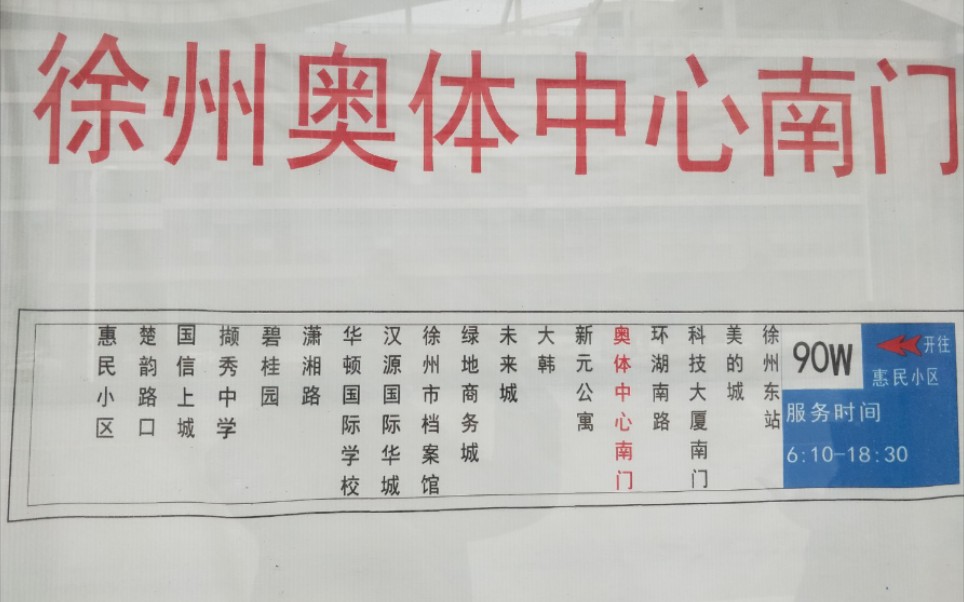 徐州奥体中心南门
90W
开往
惠民小区
服务时间
6:10-18:30
徐州东站
美的城
科技大厦南门
环湖南路
奥体中心南门
新元公寓
大韩
未来城
绿地商务城
徐州市档案馆
汉源国际华城
华顿国际学校
潇湘路
碧桂园
撷秀中学
国信上城
楚韵路口
惠民小区